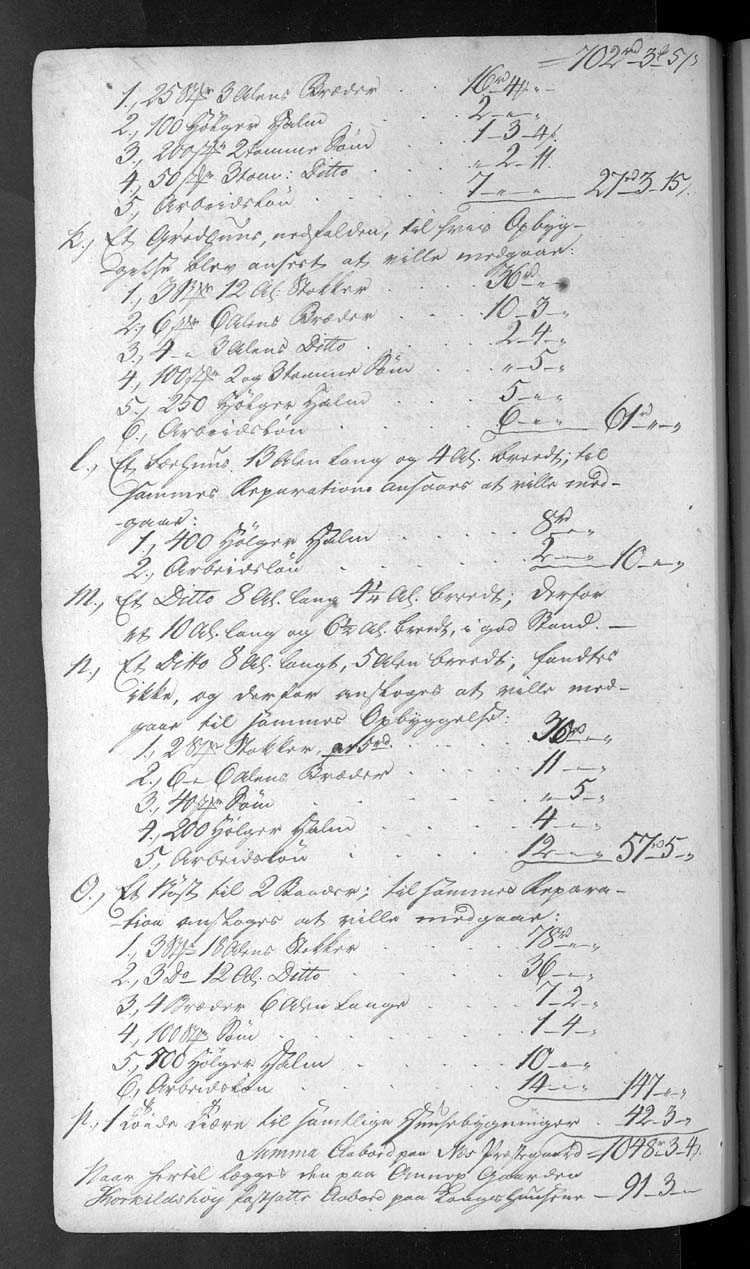 = 702rd 3 # 5 ß
1., 25 Stkr 3 Alens Bræder . . 16rd 4 # „
2., 100 Hölger Halm . . . 2 – „ – „
3., 200 Stkr 2 tomme Söm . . 1 – 3 – 4 ß
4., 50 Stkr 3 tom: Ditto . . . „ 2 – 11.
5., Arbeidslön . . . . 7 – „ – „ 27rd 3 – 15 ß.
k., Et Grødhuus, nedfalden, til hvis Opbyg-
gelse blev anseet at ville medgaae:
1., 3 Stkr 12 Al: Stokker . . . 36rd – „ – „
2., 6 Stkr 6 Alens Bræder . . . 10 – 3 – „
3., 4 – „ 3 Alens Ditto . . . 2 – 4 – „
4., 100 Stkr 2 og 3 tomme Söm . . „ – 5 – „
5., 250 Hölger Halm . . . 5 – „ – „
6., Arbeidslön . . . . 6 – „ – „ 61rd – „ – „
l., Et 13 Alen lang og 4 Al. breedt; til
sammes Reparation ansaaes at ville med-
gaae:
1., 400 Hölger Halm . . . . 8rd – „
2., Arbeidslön . . . . . 2 – „ – „ 10 – „ – „
m., Et Ditto 8 Al. lang 4¼ Al. breedt; derfor
et 10 Al. lang og 6½ Al. breedt, i god Stand. –
n., Et Ditto 8 Al. langt, 5 Alen breedt; fandtes
ikke, og derfor ansloges at ville med-
gaae til sammes Opbyggelse:
1., 2 Stokker, . . . . 30rd – „
2., 6 – „ 6 Alens Bræder . . . 11 – „ – „
3., 40 Stkr Söm . . . . „ 5 – „
4., 200 Hölger Halm . . . 4 – „ – „
5., Arbeidslön . . . . 12 – „ – „ 57rd 5 – „
O., Et Nöst til 2 Baader; til sammes Repara-
tion ansloges at ville medgaae:
1., 3 Stkr 18 Alens Stokker . . . 78rd – „ – „
2., 3 Do 12 Al. Ditto . . . . 36 – „ – „
3., 4 Bræder 6 Alen lange . . . 7 – 2 – „
4., 100 Stkr Söm . . . . . 1 – 4 – „
5., 500 Hölger Halm . . . . 10 – „ – „
6., Arbeidslön . . . . . 14 – „ – „ 147 – „ – „
p., 1 til samtlige Huusebygninger . 42 – 3 – „
Summa Aabord paa Næs Præstegaard = 1048rd 3 – 4 ß.
Naar hertil lægges den paa Annex Gaarden
Thorkildshöy fastsatte Aabord paa Kongs Huusene – 91 – 3 – „